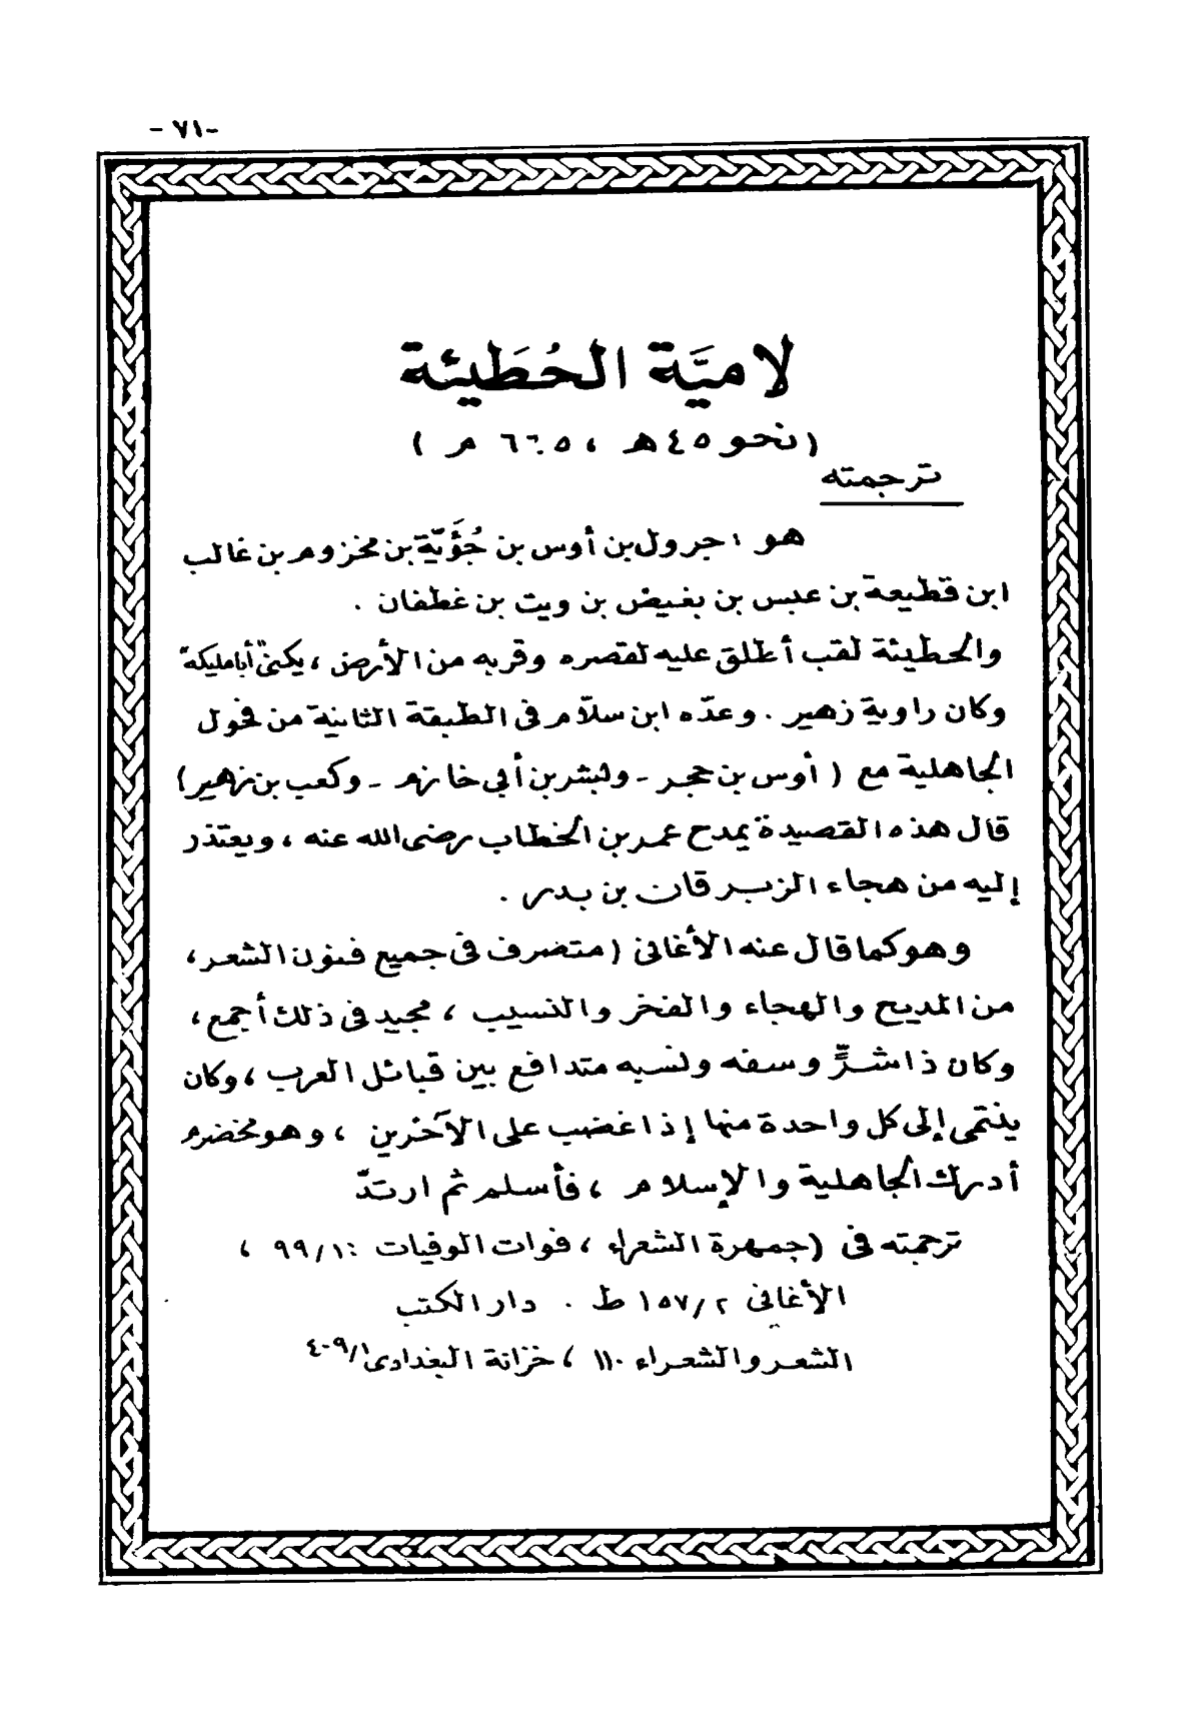 -٧١-
لاميَّة الحُطَيئة
(نحو ٤٥ هـ ، ٦٦٥ م )
ترجمته
هو : جرول بن أوس بن جُؤَيَّة بن مخزوم بن غالب
ابن قطيعة بن عبس بن بغيض بن ويت بن غطفان .
والحطيئة لقب أطلق عليه لقصره وقربه من الأرض ، يكنىّ "أبا مليكة"
وكان راوية زهير . وعدّه ابن سلاّم فى الطبقة الثانية من فحول
الجاهلية مع ( أوس بن حجر - ولبشر بن أبي خازم - وكعب بن زهير )
قال هذه القصيدة يمدح عمر بن الخطاب رضى الله عنه ، ويعتذر
إليه من هجاء الزبرقان بن بدر .
وهو كما قال عنه الأغانى ( متصرف فى جميع فنون الشعر ،
من المديح والهجاء والفخر والنسيب ، مجيد فى ذلك أجمع ،
وكان ذا شرٍّ وسفه ونسبه متدافع بين قبائل العرب ، وكان
ينتمى إلى كل واحدة منها إذا غضب على الآخرين ، وهو مخضرم
أدرك الجاهلية والإسلام ، فأسلم ثم ارتدّ
ترجمته فى ( جمهرة الشعراء ، فوات الوفيات : ٩٩/١ ،
الأغانى ١٥٧/٢ ط . دار الكتب
الشعر والشعراء ١١٠ ، خزانة البغدادى ٤٠٩/١